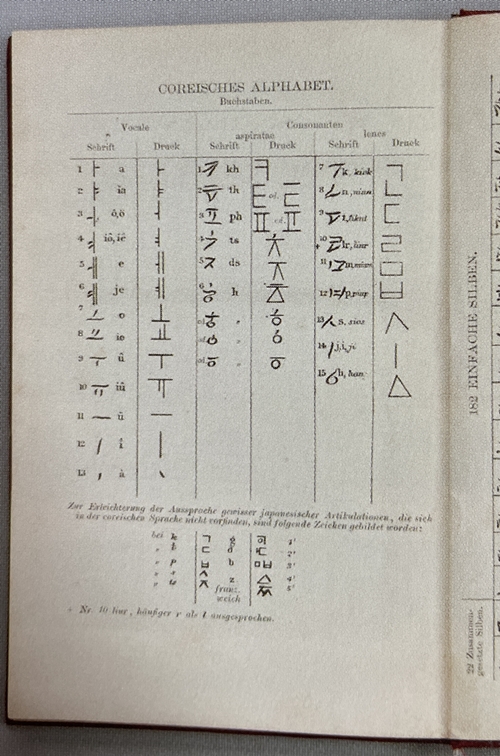 COREISCHES ALPHABET.
Buchstaben.
Vocale Consonanten
aspiratae lenes
Schrift Druck Schrift Druck Schrift Druck
1 ㅏ a ㅏ 1 kh ㅋ 7 k, kiök ㄱ
2 ㅑ ia ㅑ 2 th ㅌ od. 8 n, niun ㄴ
3 ㅓ ŏ,ö ㅓ 3 ph ㅍ od. ㅍ 9 t, tikut ㄷ
4 ㅕ iŏ, iĕ ㅕ 4 ts ㅊ 10 lr, liur ㄹ
5 e ㅔ 5 ds ㅈ 11 m, mium ㅁ
6 je ㅖ 6 h 12 p, piup ㅂ
7 ㅗ o ㅗ od. „ ㅎ 13 s, sios ㅅ
8 ㅛ io ㅛ od. „ 14 j, i, ji ㅣ
9 ㅜ û ㅜ od. „ 15 h, han △
10 ㅠ iû ㅠ
11 ㅡ ŭ ㅡ
12 ㅣ i ㅣ
13 à
Zur Erleichterung der Aussprache gewisser japanesischer Artikulationen, die sich
in der coreischen Sprache nicht vorfinden, sind folgende Zeichen gebildet worden:
bei k ㄱ g 1'
„ t ㄷ d 2'
„ p ㅂ b 3'
„ s ㅅ z 4'
„ ts ㅈ franz. 5'
weich
Nr. 10 liur, häufiger r als l ausgesprochen.
182 EINFACHE SILBEN.
22 Zusammen-
gesetzte Silben.